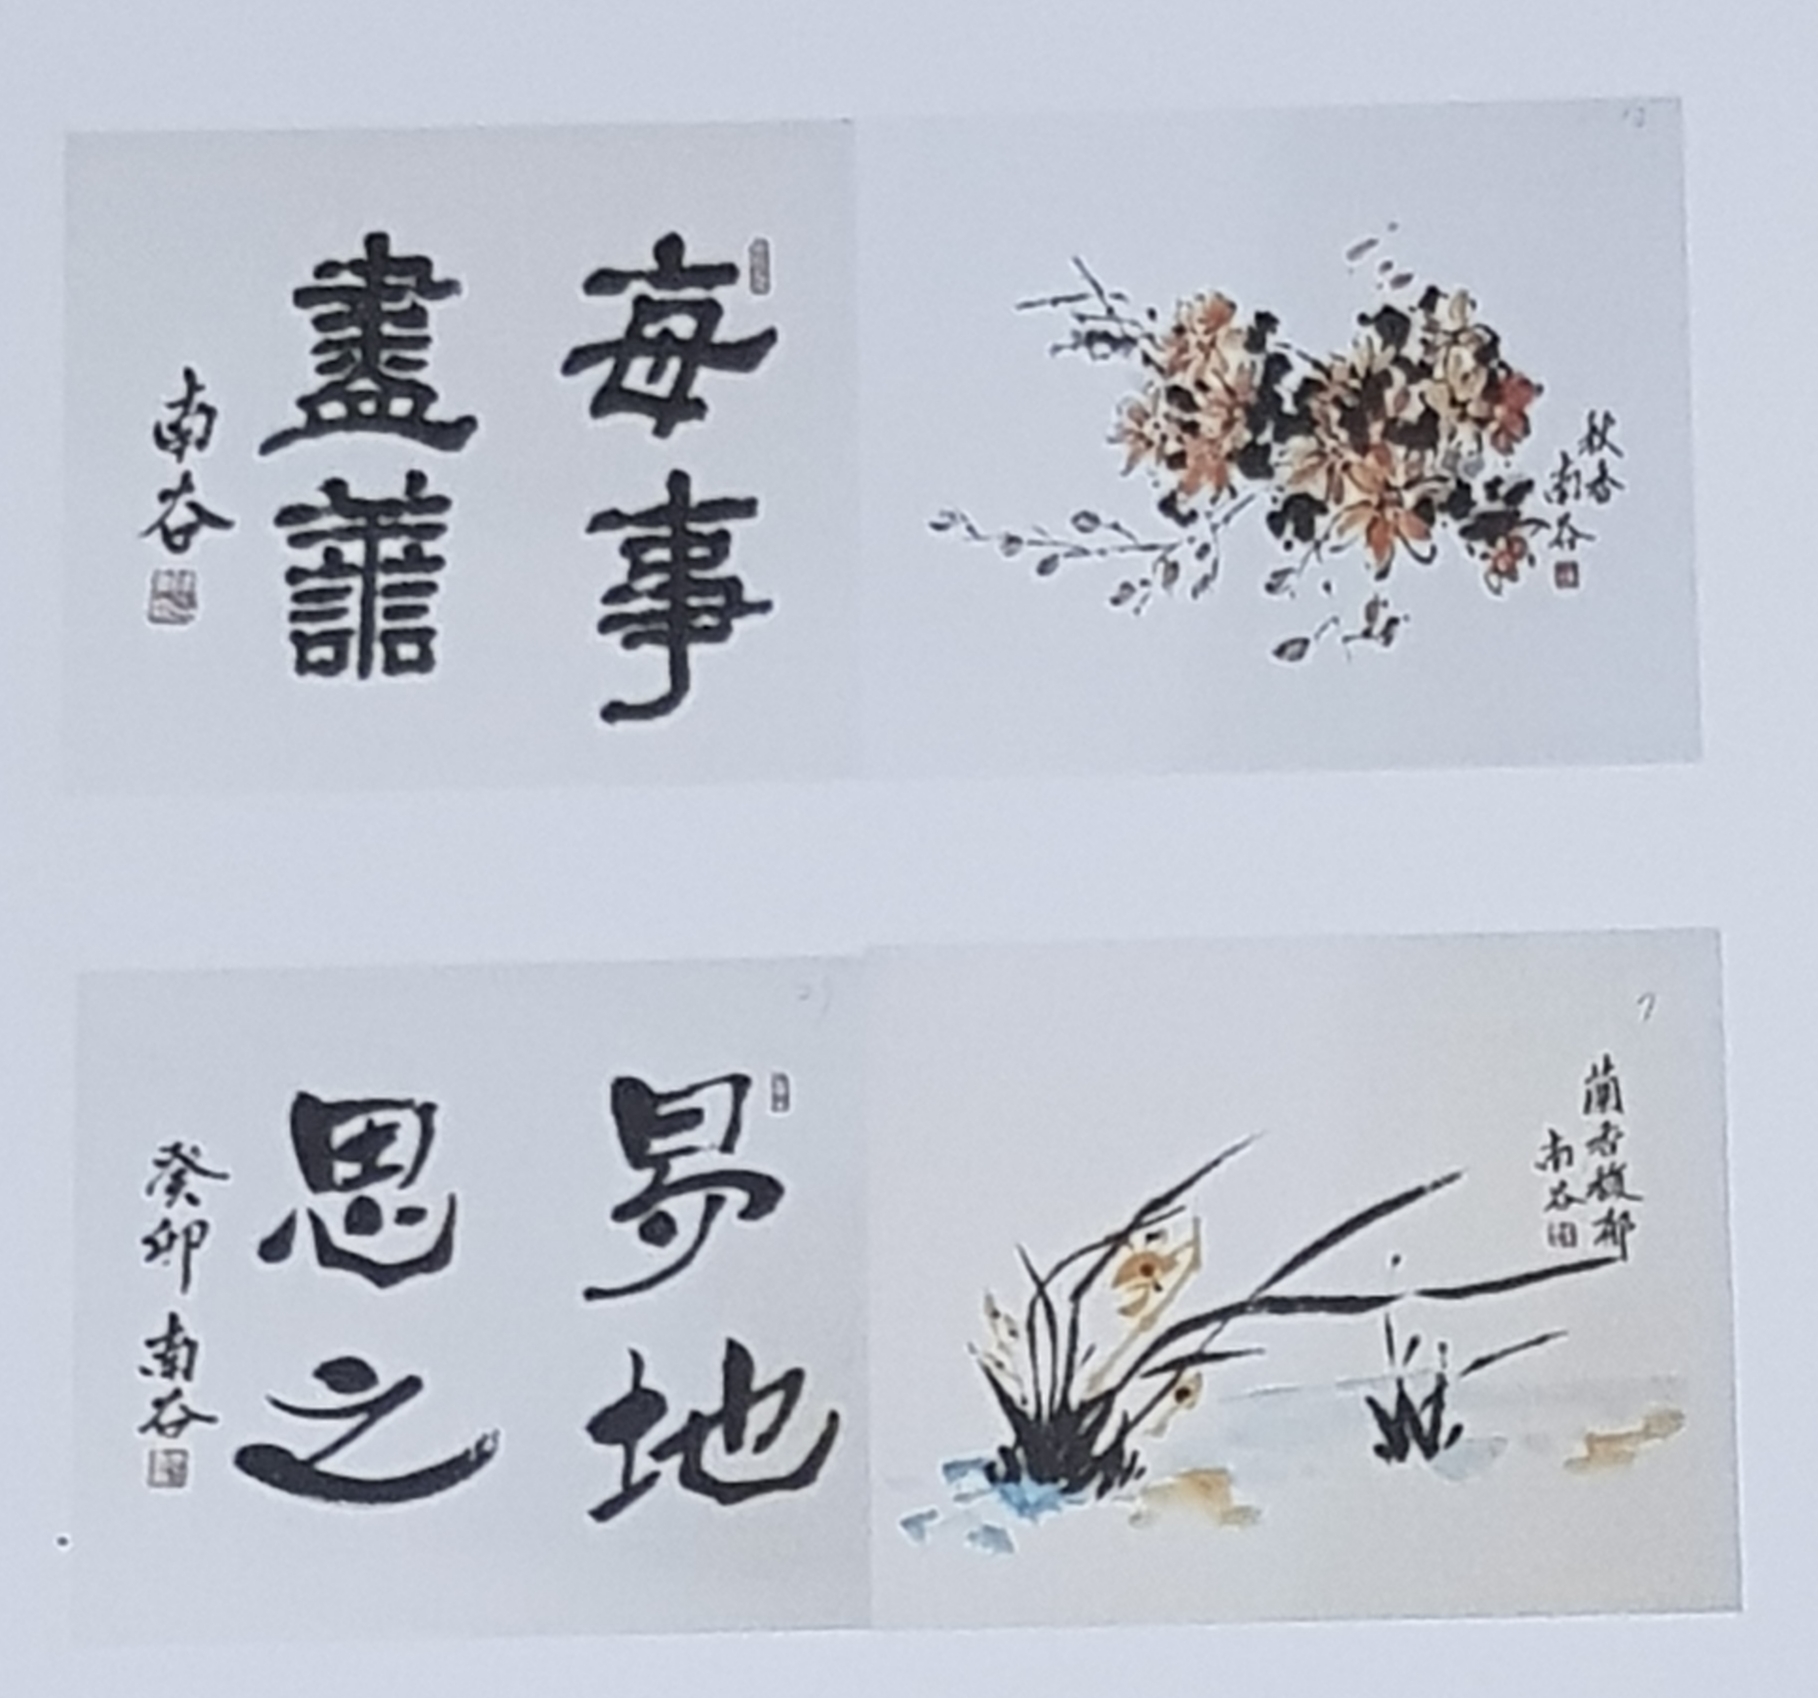 每事
盡譱
南谷
秋香
南谷
易地
思之
癸卯 南谷
蘭香馥郁
南谷
7